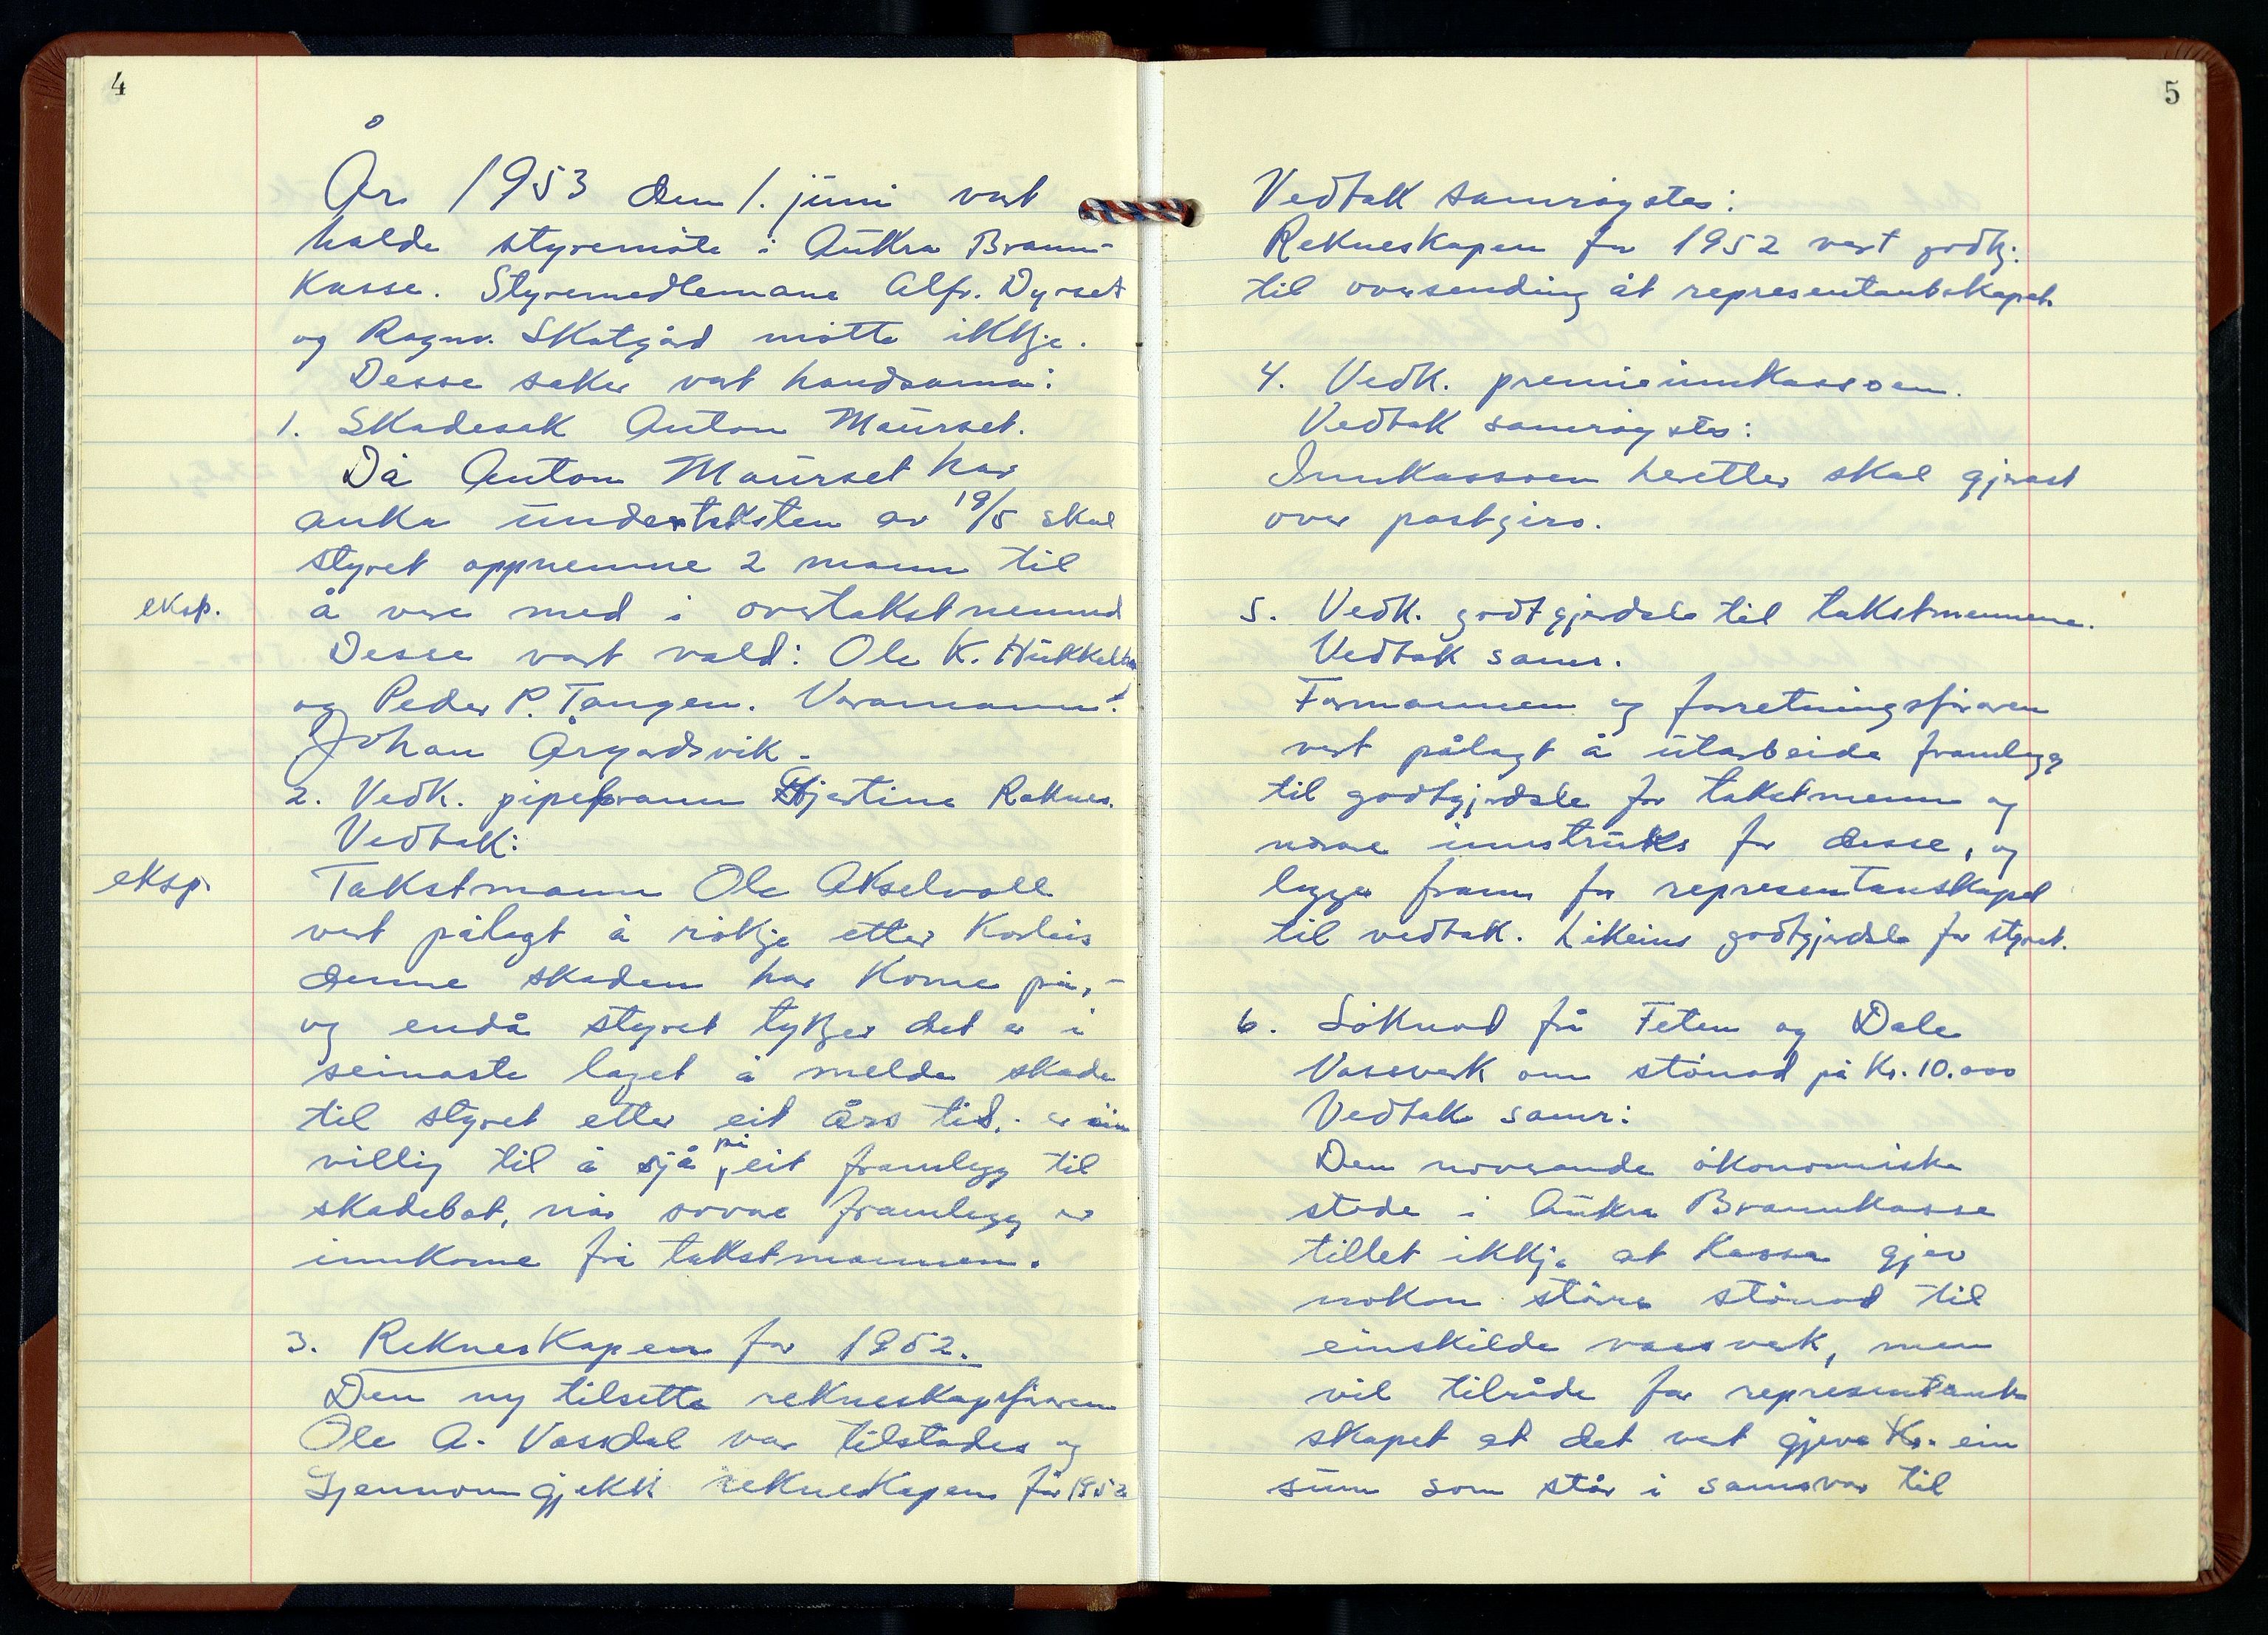 4
År 1953 den 1. juni vart
halde styremöte i Aukra Brann-
kasse. Styremedlemane Alfr. Dyrset
og Ragnv. Skotgård mötte ikkje.
Desse saker vart handsama:
1. Skadesak Anton Maurset.
Då Anton Maurset har
anka undertaksten av 19/5 skal
styret oppnemne 2 mann til
eksp. å vere med i overtakstnemnd
Desse vart vald: Ole K. Hukkelberg
og Peder P. Tangen. Varamann:
Johan Orgardsvik.
2. Vedk. pipebrann Hjertine Raknes.
Vedtak:
eksp. Takstmann Ole Akselvoll
vert pålagt å rökje etter korleis
denne skaden har kome på, -
og endå styret tykkjer det er i
seinaste laget å melde skade
til styret etter eit års tid, - er ein
villig til å sjå på eit framlegg til
skadebot, når sovore framlegg er
innkome frå takstmannen.
3. Rekneskapen for 1952.
Den ny tilsette rekneskapsföraren
Ole A. Vassdal var tilstades og
Gjennomgjekk rekneskapen for 1952
5
Vedtak samröystes:
Rekneskapen for 1952 vert godkj.
til oversending åt representantskapet.
4. Vedk. premieinnkassoen.
Vedtak samröystes:
Innkassoen heretter skal gjerast
over postgiro.
5. Vedk. godtgjerdsle til takstmennene.
Vedtak samr.
Formannen og forretningsföraren
vert pålagt å utarbeide framlegg
til godtgjerdsle for takstmenn og
nörare innstruks for desse, og
legger fram for representanskapet
til vedtak. Likeins godtgjerdsle for styret.
6. Söknad frå Feten og Dale
Vassverk om stönad på Kr. 10.000
Vedtak samr:
Den noverande ökonomiske
stode i Aukra Brannkasse
tillet ikkje at kassa gjev
nokon större stönad til
einskilde vassverk, men
vil tilråde for representant-
skapet at det vert gjeve Kr. ein
sum som står i samsvar til